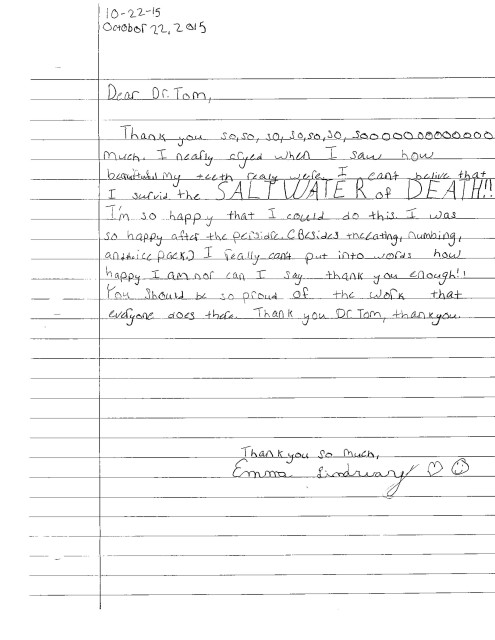 10-22-15
October 22, 2015
Dear Dr. Tom,
Thank you so, so, so, so, so, so, soooooooooooooo
much. I nearly cryed when I saw how
beautiful my teeth realy were. I cant belive that
I survid the SALT WATER of DEATH!!
I'm so happy that I could do this. I was
so happy after the (Besides the eating, numbing,
and ice pack.) I really cant put into words how
happy I am nor can I say thank you enough!!
You should be so proud of the work that
everyone does there. Thank you Dr. Tom, thankyou.
Thank you so much,
Emma